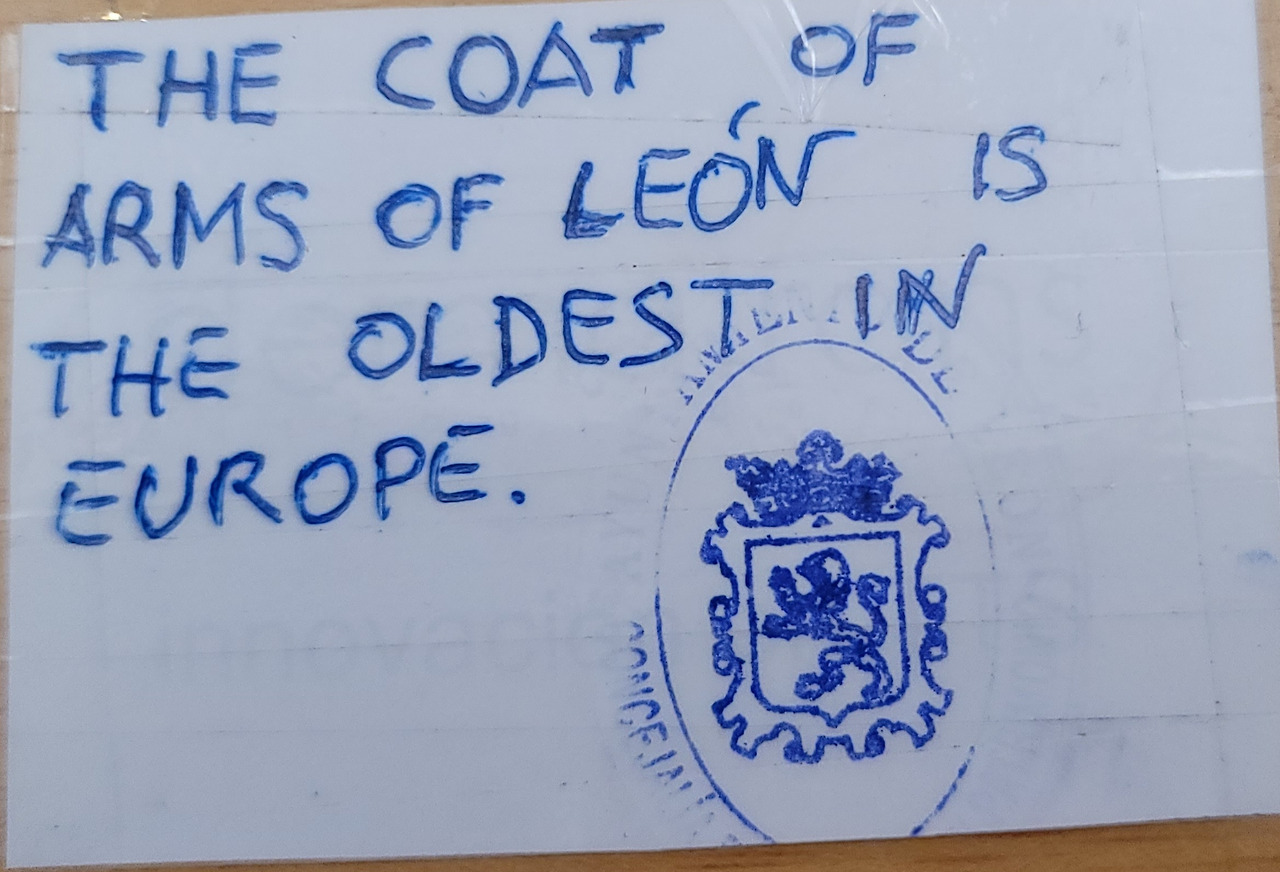 THE COAT OF
ARMS OF LEÓN IS
THE OLDEST IN
EUROPE.